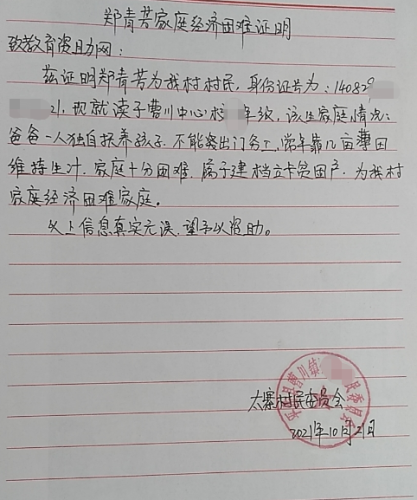 郑青芳家庭经济困难证明
致教育资助网：
兹证明郑青芳为我村村民，身份证号为：14082
21，现就读于曹川中心校 年级，该生家庭情况：
爸爸一人独自抚养孩子，不能突出门务工，常年靠几亩薄田
维持生计，家庭十分困难，属于建档立卡贫困户，为我村
家庭经济困难家庭。
以上信息真实无误，望予以资助。
太寨村民委员会
2021年10月21日